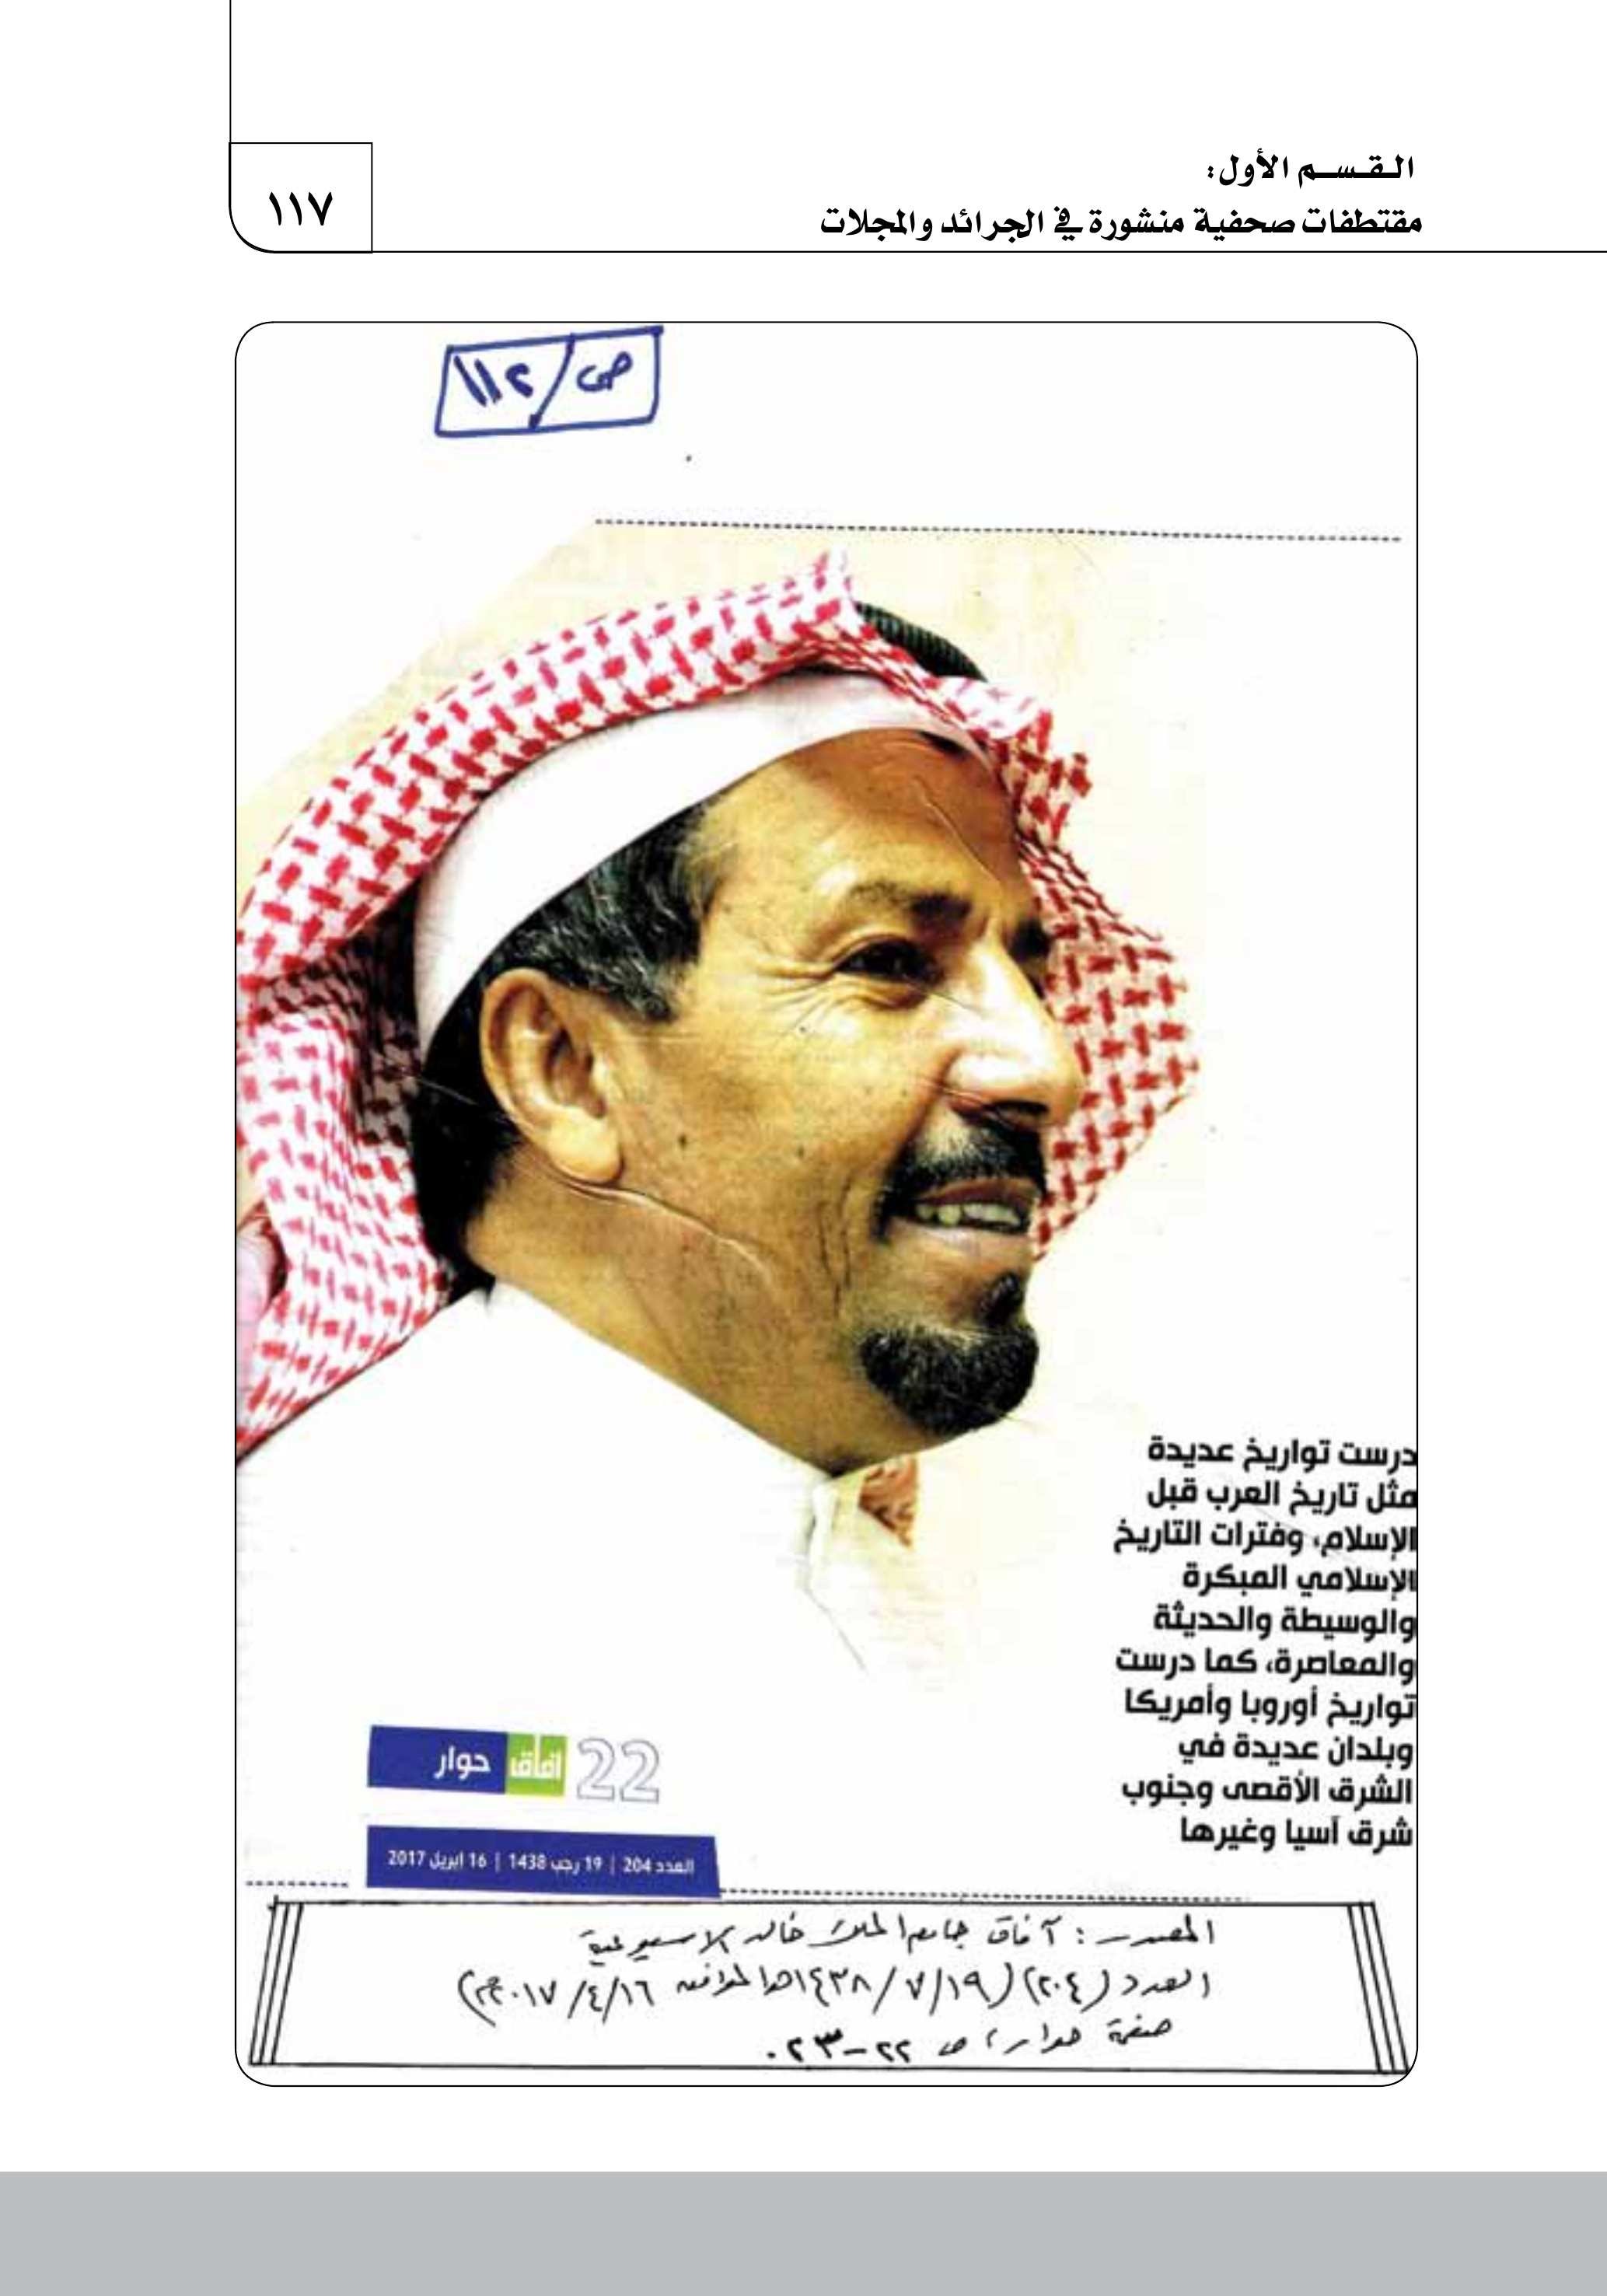 القسم الأول:
مقتطفات صحفية منشورة في الجرائد والمجلات
١١٧
ص/١١٢
درست تواريخ عديدة
مثل تاريخ العرب قبل
الإسلام، وفترات التاريخ
الإسلامي المبكرة
والوسيطة والحديثة
والمعاصرة، كما درست
تواريخ أوروبا وأمريكا
وبلدان عديدة في
الشرق الأقصى وجنوب
شرق آسيا وغيرها
22 آفاق حوار
العدد 204 | 19 رجب 1438 | 16 ابريل 2017
المصدر : آفاق جامعة الملك خالد الاسبوعية
العدد (٢٠٤) (١٤٣٨/٧/١٩هـ الموافق ٢٠١٧/٤/١٦م)
صفحة حوار، ص ٢٢-٢٣.